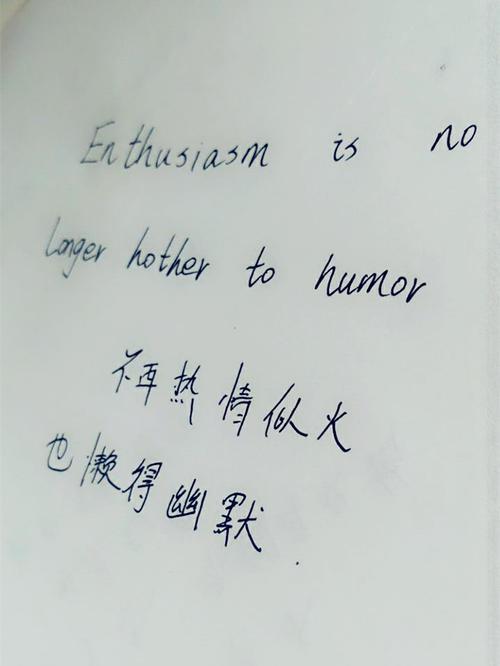 Enthusiasm is no
longer hother to humor
不再热情似火
也懒得幽默.